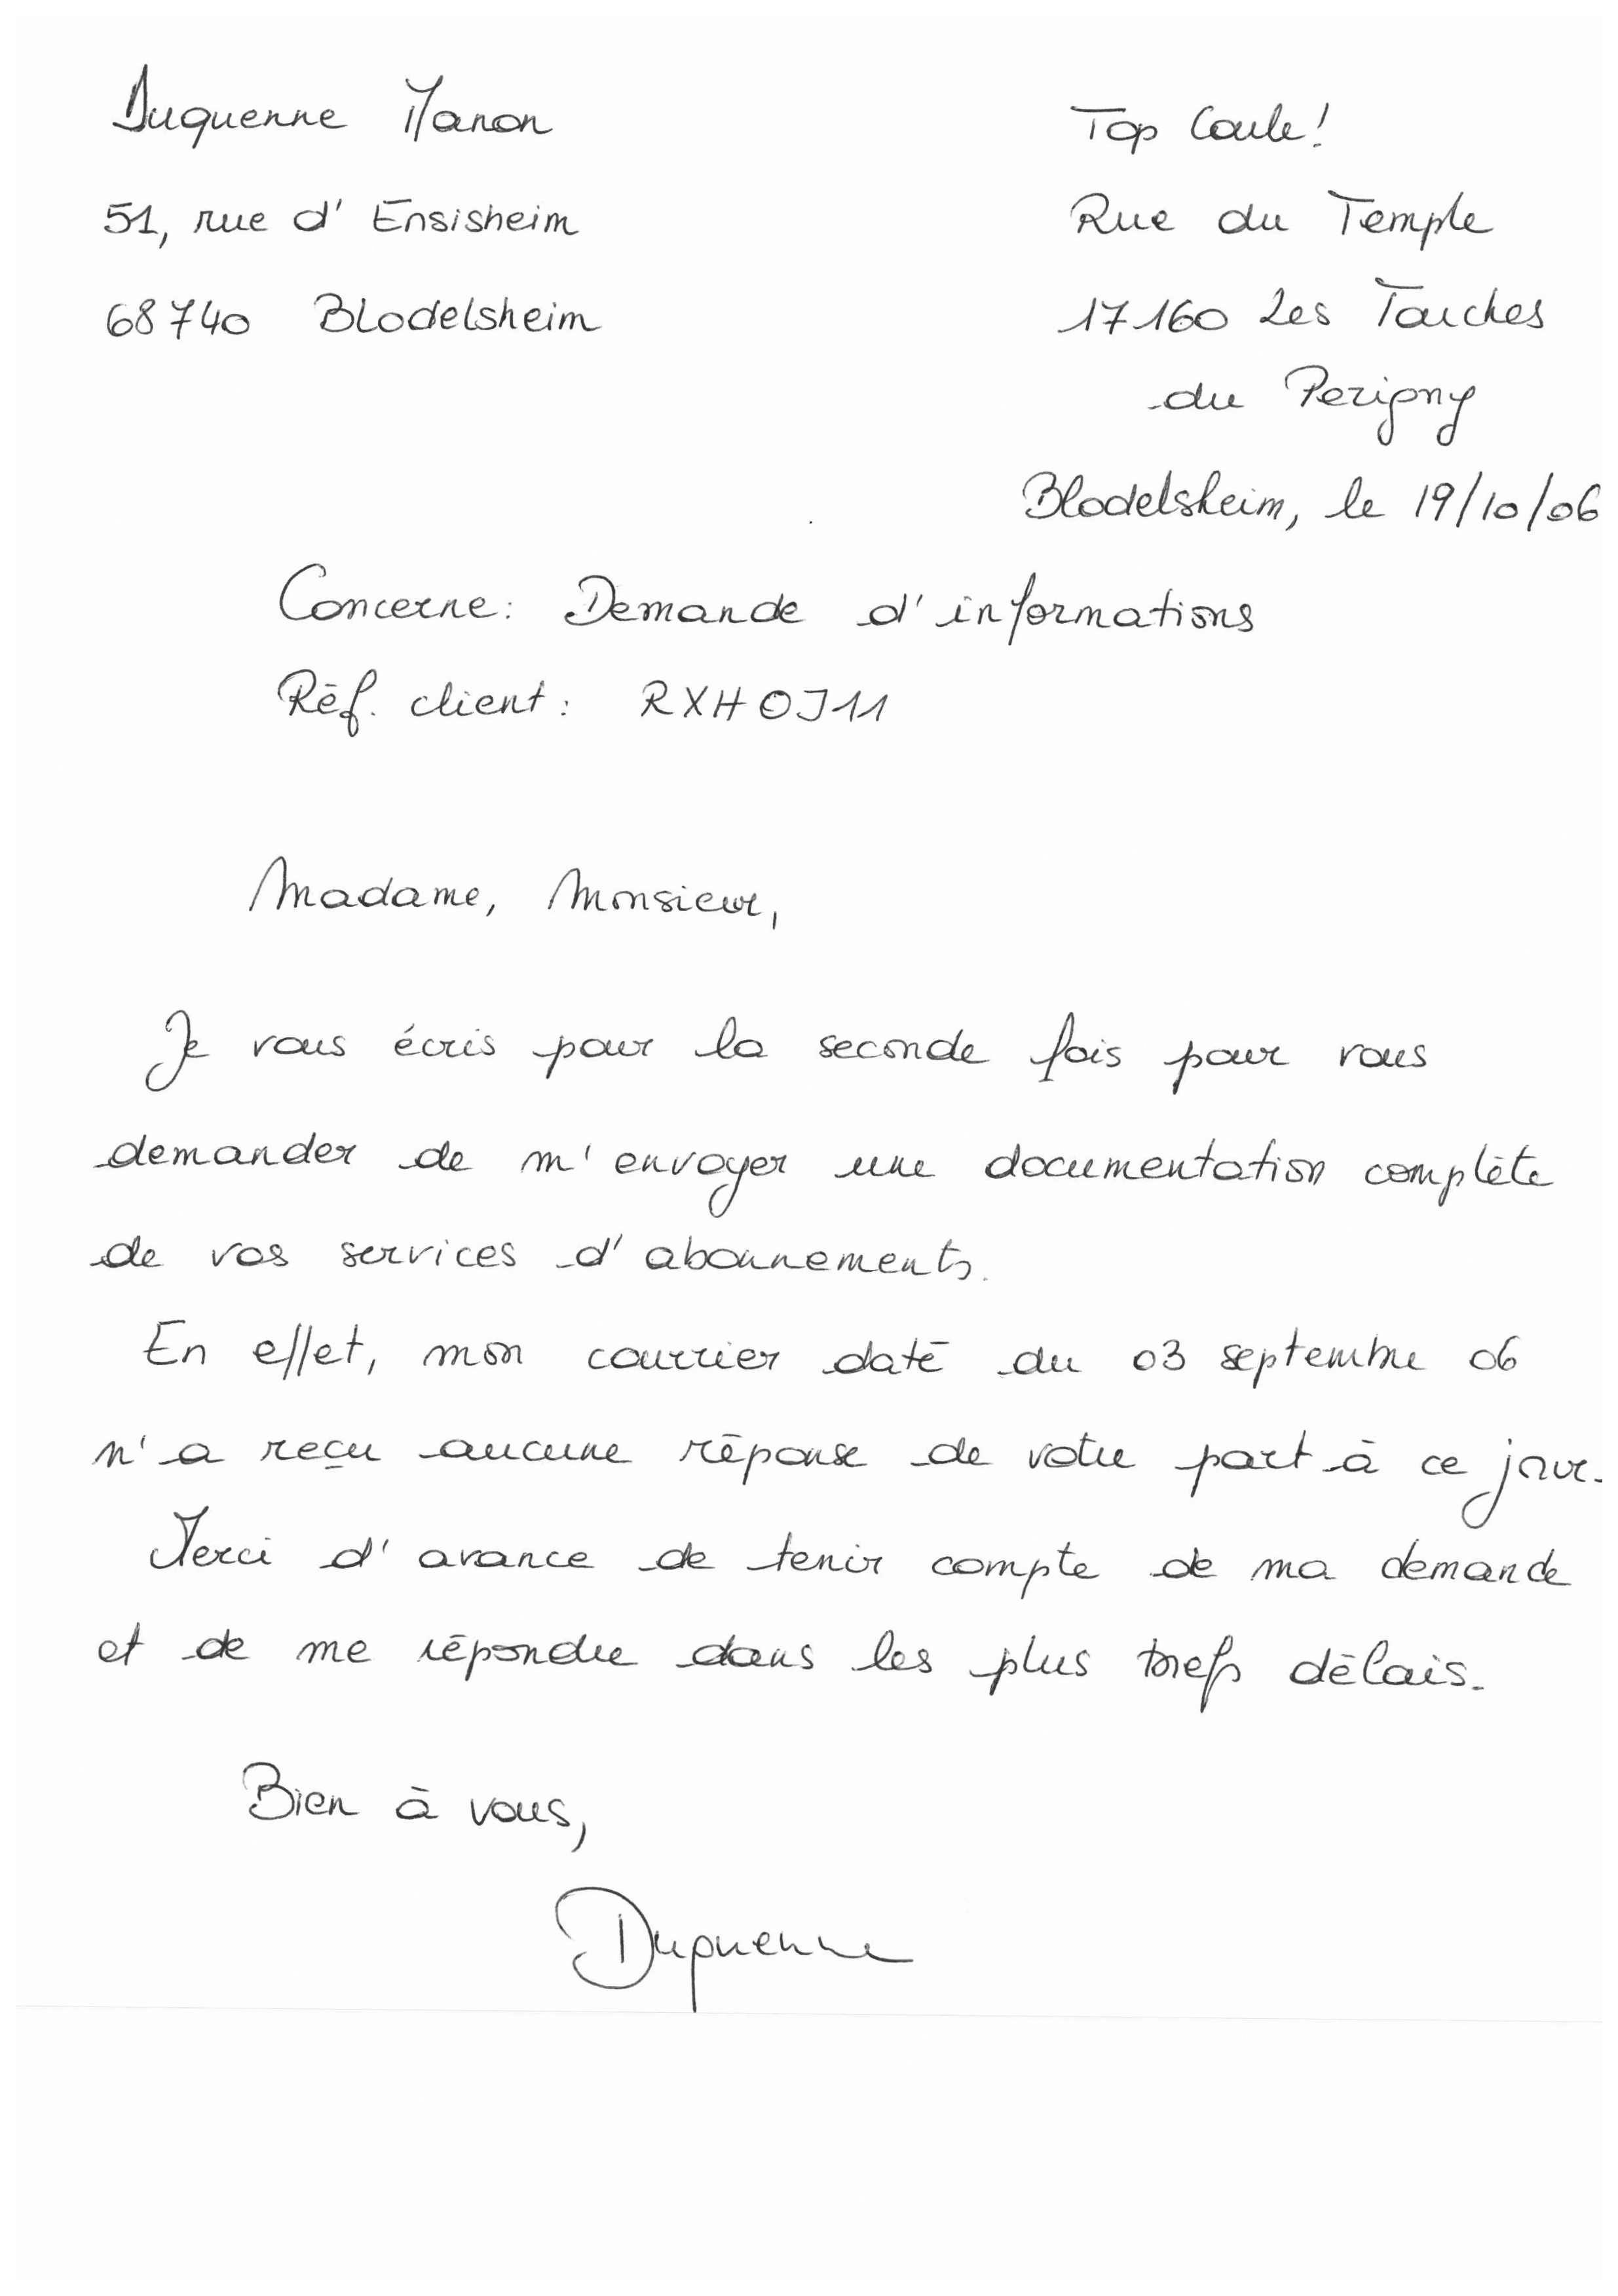 Duquenne Manon
51, rue d'Ensisheim
68740 Blodelsheim
Top Coule!
Rue du Temple
17160 Les Touches
du Perigny
Blodelsheim, le 19/10/06
Concerne: Demande d'informations
Réf. client: RXHOJ11
Madame, Monsieur,
Je vous écris pour la seconde fois pour vous
demander de m'envoyer une documentation complète
de vos services d'abonnements.
En effet, mon courrier daté du 03 septembre 06
n'a reçu aucune réponse de votre part à ce jour.
Merci d'avance de tenir compte de ma demande
et de me répondre dans les plus brefs délais.
Bien à vous,
Duquenne